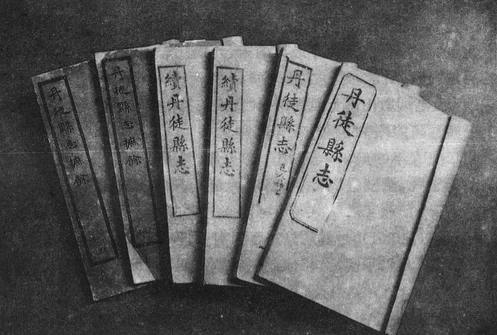 丹徒縣志
丹徒縣志
續丹徒縣志
續丹徒縣志
丹徒縣志摭餘
丹徒縣志摭餘